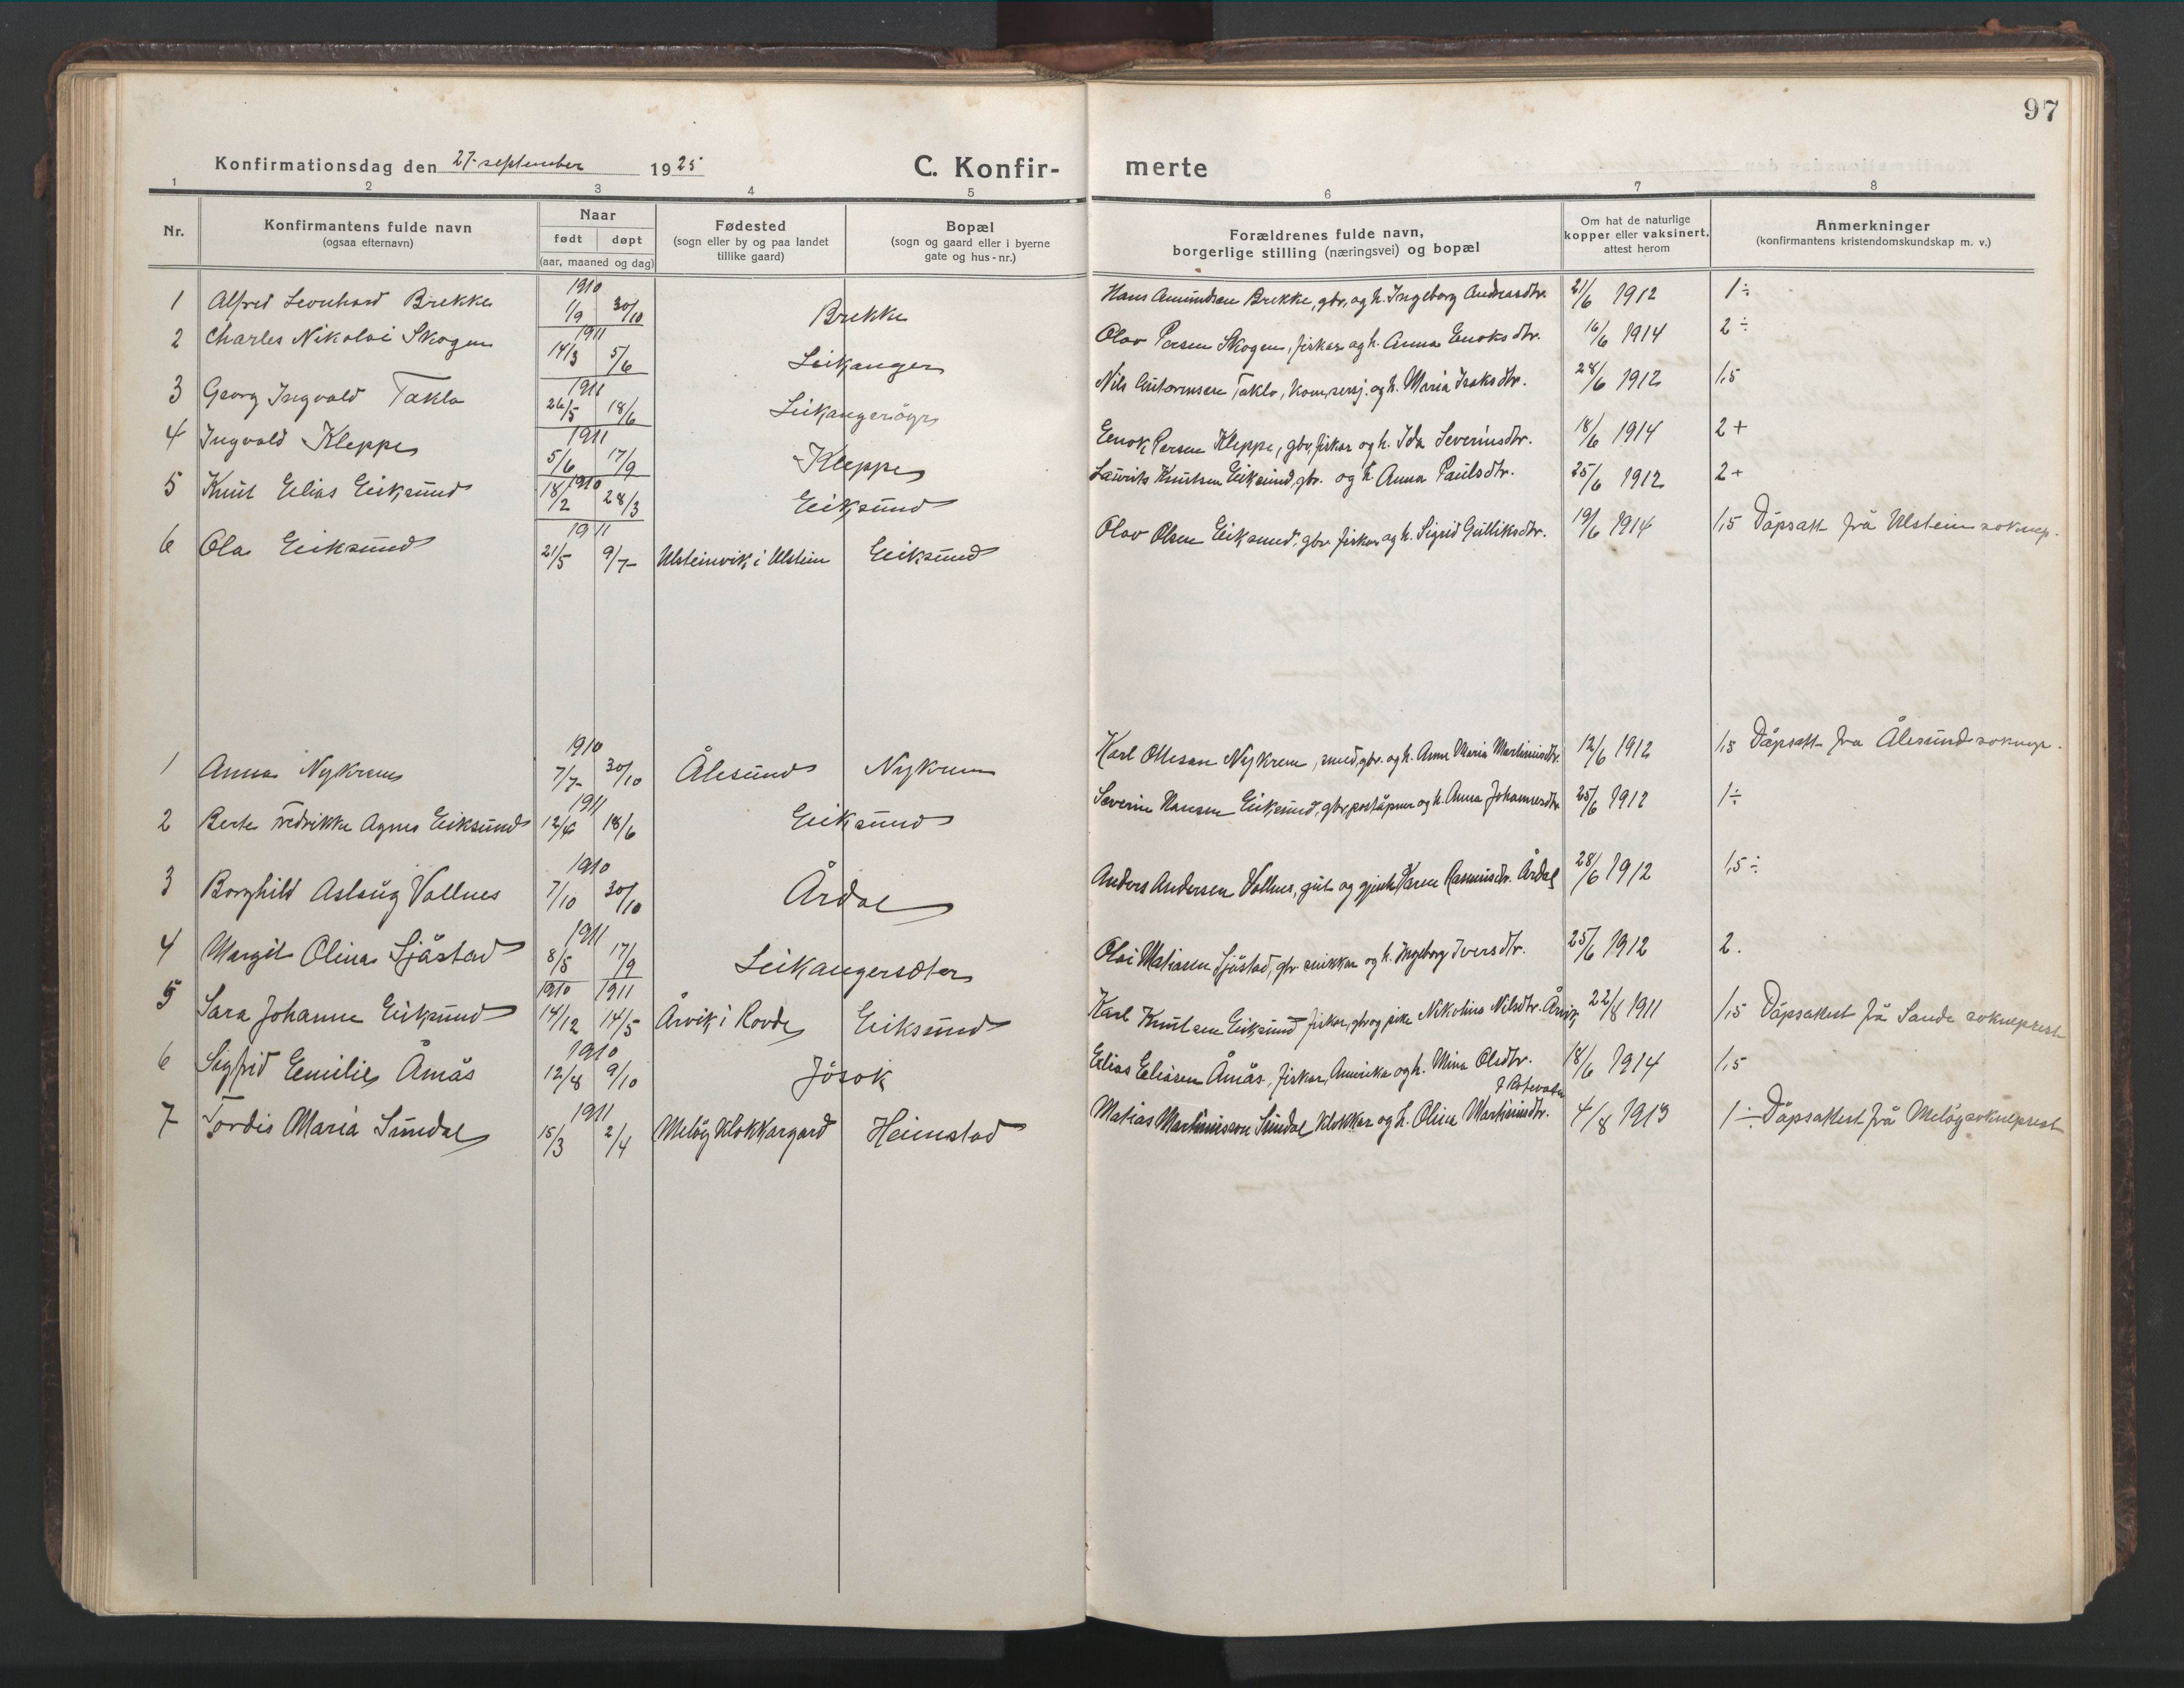 97
Konfirmationsdag den 27. september 1925
C. Konfir- merte
1 2 3 4 5 6 7 8
Nr.
Konfirmantens fulde navn
(ogsaa efternavn)
Naar
født døpt
(aar, maaned og dag)
Fødested
(sogn eller by og paa landet
tillike gaard)
Bopæl
(sogn og gaard eller i byerne
gate og hus-nr.)
Forældrenes fulde navn,
borgerlige stilling (næringsvei) og bopæl
Om hat de naturlige
kopper eller vaksinert,
attest herom
Anmerkninger
(konfirmantens kristendomskundskap m. v.)
1 Alfred Leonhard Brekke 1910 1/9 30/10 Brekke Hans Amundsen Brekke, gbr. og h. Ingeborg Andreasdtr. 21/6 1912 1÷
2 Charles Nikolai Skogen 1911 14/3 5/6 Leikanger Olav Persen Skogen, fiskar og h. Anna Enoksdtr. 16/6 1914 2÷
3 Georg Ingvald Taklo 1911 26/5 18/6 Leikangerøyr Nils Taklo, og h. Maria Isaksdtr. 28/6 1912 1,5
4 Ingvald Kleppe 1911 5/6 17/9 Kleppe Enok Persen Kleppe, gbr, fiskar og h. Ida Severinsdtr. 18/6 1914 2+
5 Knut Elias Eiksund 1910 18/2 28/3 Eiksund Laurits Knutsen Eiksund, gbr. og h. Anna Paulsdtr. 25/6 1912 2+
6 Ola Eiksund 1911 21/5 9/7 Ulsteinvik i Ulstein Eiksund Olav Olsen Eiksund, gbr. fiskar og h. Sigrid Gulliksdtr. 19/6 1914 1,5 Dåpsatt. frå Ulstein soknep.
1 Anna Nykrem 1910 7/7 30/10 Ålesund Nykrem Karl Olleson Nykrem, smed, gbr. og h. Anne Maria Martinusdtr. 12/6 1912 1,5 Dåpsatt. fra Ålesund soknepr.
2 Berte Fredrikke Agnes Eiksund 1911 12/4 18/6 Eiksund Severin Hansen Eiksund, gbr, poståpner og h. Anna Johannesdtr. 25/6 1912 1÷
3 Borghild Aslaug Vollnes 1910 7/10 30/10 Årdal Anders Andersen Vollnes, gut og gjente Karen Rasmusdtr. Årdal 28/6 1912 1,5÷
4 Margit Olina Sjåstad 1911 8/5 17/9 Leikangersæter Olai Matiasen Sjåstad, gbr. snikkar og h. Ingeborg Iversdtr. 25/6 1912 2.
5 Sara Johanne Eiksund 1910 1911 14/12 14/5 Årvik i Rovde Eiksund Karl Knutsen Eiksund fiskar, gbr og pike Nikoline Nilsdtr. Årvik 22/8 1911 1,5 Dåpsattest frå Sande sokneprest
6 Sigfrid Emilie Åmås 1910 12/8 9/10 Jøsok Elias Eliasen Åmås, fiskar, Amerika og h. Mina Olsdtr. 18/6 1914 1,5
7 Tordis Maria Sundal 1911 15/3 2/4 Meløy Klokkargard Heimstad Matias Martinusson Sundal klokkar og h. Olina Martinusdtr. 4/8 1913 1÷ Dåpsattest frå Meløy sokneprest